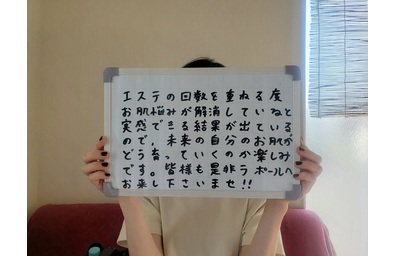 エステの回数を重ねる度
お肌悩みが解消していねと
実感できる結果が出ている
ので、未来の自分のお肌が
どう育っていくのか楽しみ
です。皆様も是非ラポールへ
お来し下さいませ!!